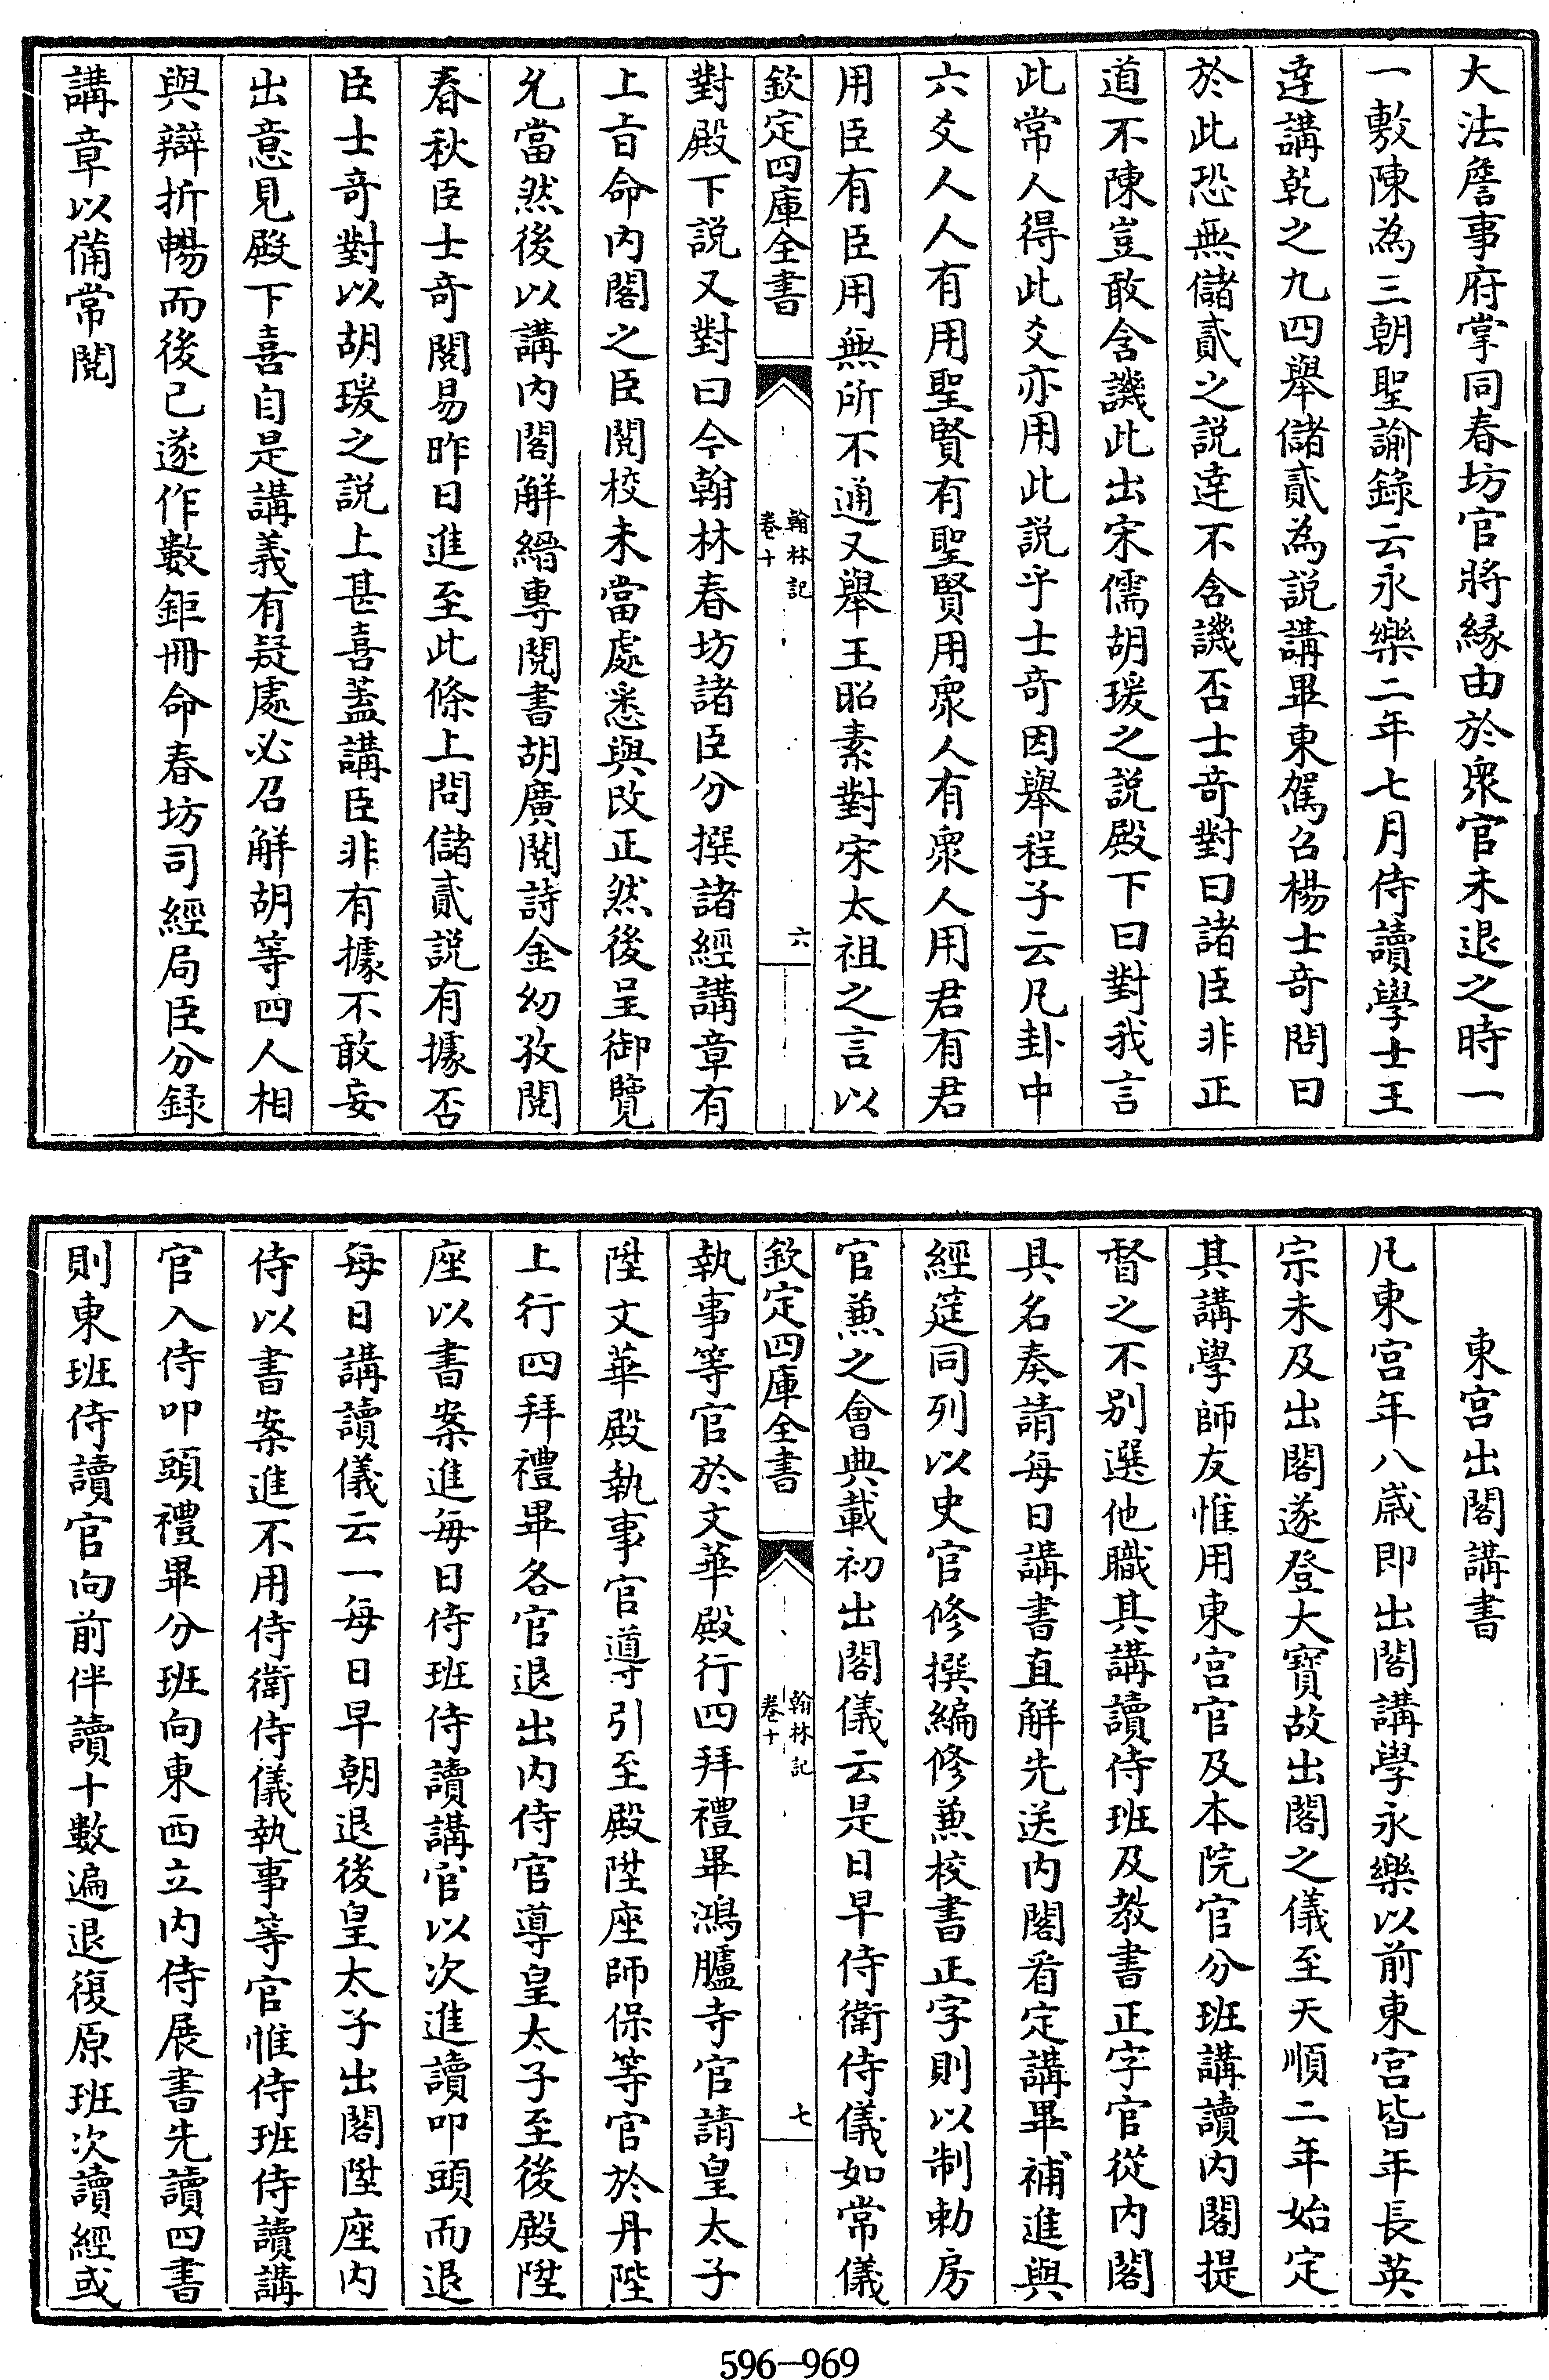 大法詹事府掌同春坊官將緣由於衆官未退之時一
一敷陳為三朝聖諭錄云永樂二年七月侍讀學士王
達講乾之九四舉儲貳為説講畢東駕召楊士奇問曰
於此恐無儲貳之説達不含譏否士奇對曰諸臣非正
道不陳豈敢含譏此出宋儒胡瑗之説殿下曰對我言
此常人得此爻亦用此説乎士奇因舉程子云凡卦中
六爻人人有用聖賢有聖賢用衆人有衆人用君有君
用臣有臣用無所不通又舉王昭素對宋太祖之言以
欽定四庫全書
翰林記
卷十
六
對殿下説又對曰今翰林春坊諸臣分撰諸經講章有
上㫖命内閣之臣閲校未當處悉與改正然後呈御覽
允當然後以講内閣解縉專閲書胡廣閲詩金幼孜閲
春秋臣士奇閲易昨日進至此條上問儲貳説有據否
臣士奇對以胡瑗之説上甚喜蓋講臣非有據不敢妄
出意見殿下喜自是講義有疑處必召解胡等四人相
與辯折暢而後已遂作數鉅冊命春坊司經局臣分錄
講章以備常閲
東宫出閣講書
凡東宫年八歲即出閣講學永樂以前東宫皆年長英
宗未及出閣遂登大寶故出閣之儀至天順二年始定
其講學師友惟用東宫官及本院官分班講讀内閣提
督之不别選他職其講讀侍班及教書正字官從内閣
具名奏請每日講書直解先送内閣看定講畢補進與
經筵同列以史官修撰編修兼校書正字則以制勅房
官兼之會典載初出閣儀云是日早侍衛侍儀如常儀
欽定四庫全書
翰林記
卷十
七
執事等官於文華殿行四拜禮畢鴻臚寺官請皇太子
陞文華殿執事官導引至殿陞座師保等官於丹陛
上行四拜禮畢各官退出内侍官導皇太子至後殿陞
座以書案進每日侍班侍讀講官以次進讀叩頭而退
每日講讀儀云一每日早朝退後皇太子出閣陞座内
侍以書案進不用侍衛侍儀執事等官惟侍班侍讀講
官入侍叩頭禮畢分班向東西立内侍展書先讀四書
則東班侍讀官向前伴讀十數遍退復原班次讀經或
596-969